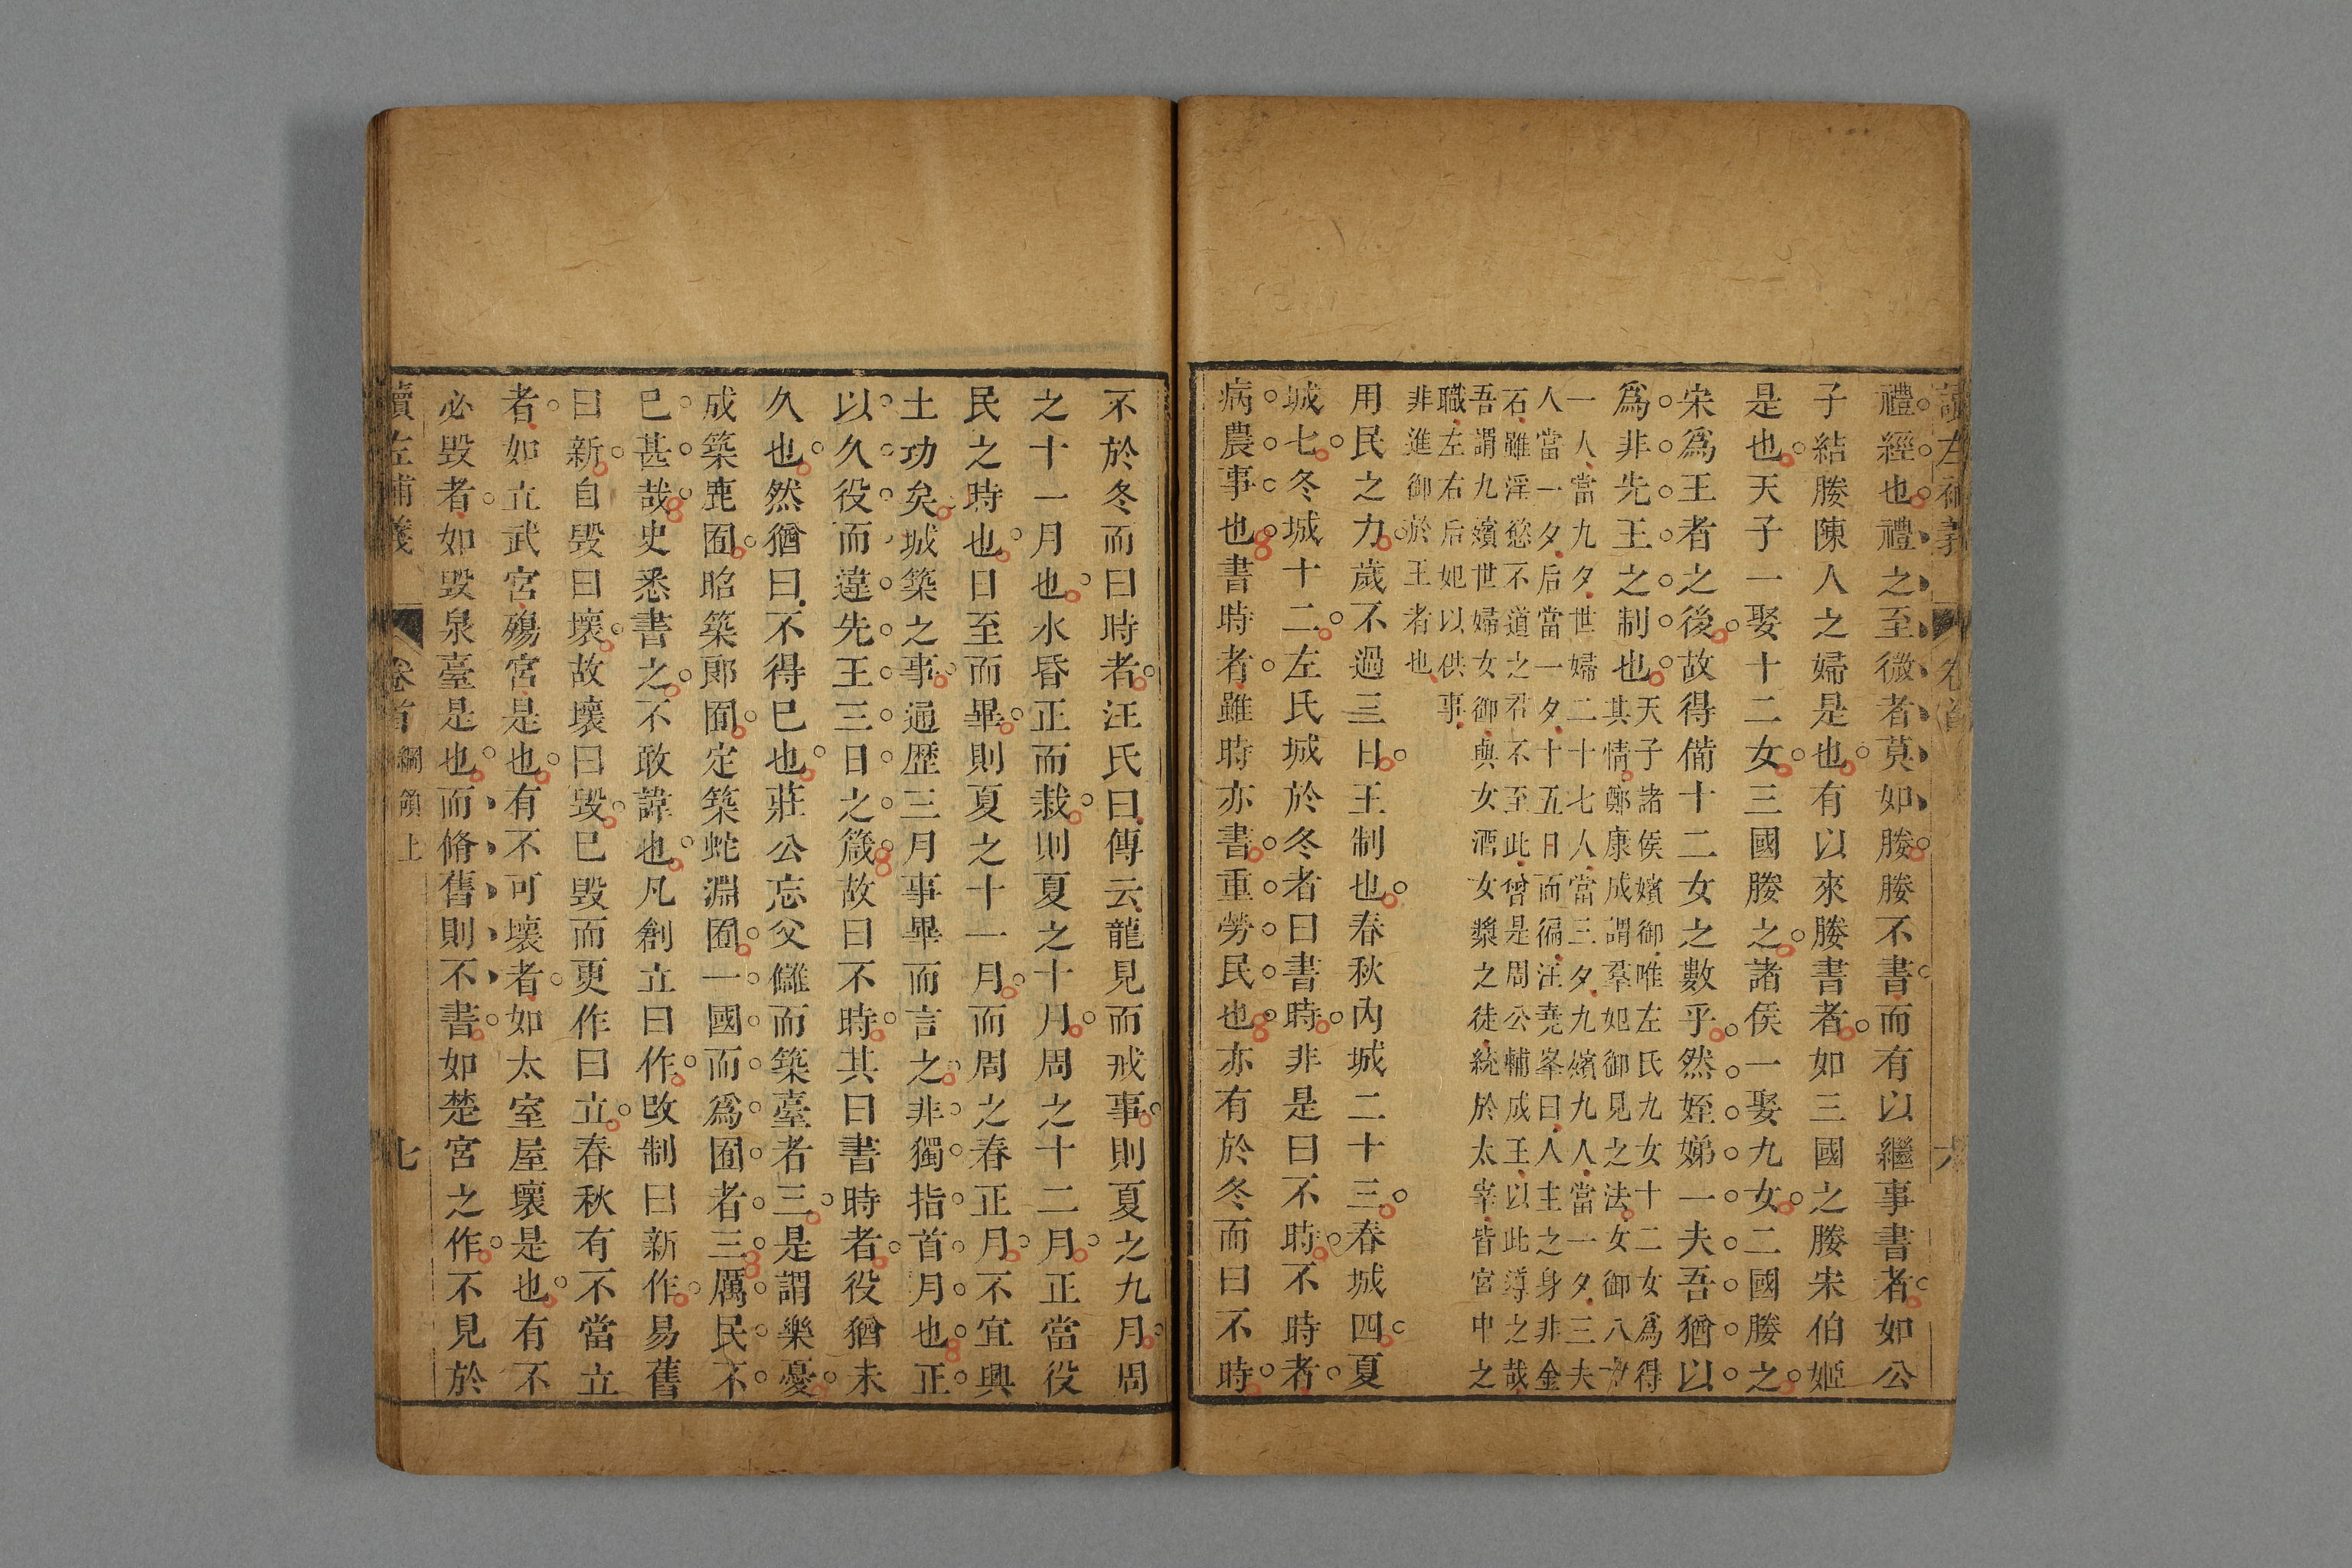 讀左補義 卷首 六
禮經也禮之至微者莫如媵媵不書而有以繼事書者如公
子結媵陳人之婦是也有以來媵書者如三國之媵宋伯姬
是也天子一娶十二女三國媵之諸侯一娶九女二國媵之
宋爲王者之後故得備十二女之數乎然姪娣一夫吾猶以
爲非先王之制也
天子諸侯嬪御唯左氏九女十二女爲得
其情鄭康成謂羣妃御見之法女御八十
一人當九夕世婦二十七人當三夕九嬪九人當一夕三夫
人當一夕后當一夕十五日而徧汪堯峯曰人主之身非金
石雖淫慾不道之君不至此曾是周公輔成王以此導之哉
吾謂九嬪世婦女御與女酒女漿之徒統於太宰皆宮中之
職左右后妃以供事
非進御於王者也
用民之力歲不過三日王制也春秋內城二十三春城四夏
城七冬城十二左氏城於冬者曰書時非是曰不時不時者
病農事也書時者雖時亦書重勞民也亦有於冬而曰不時
不於冬而曰時者汪氏曰傳云龍見而戒事則夏之九月周
之十一月也水昏正而栽則夏之十月周之十二月正當役
民之時也日至而畢則夏之十一月而周之春正月不宜興
土功矣城築之事通歷三月事畢而言之非獨指首月也正
以久役而違先王三日之箴故曰不時其曰書時者役猶未
久也然猶曰不得已也莊公忘父讎而築臺者三是謂樂憂
成築鹿囿昭築郎囿定築蛇淵囿一國而爲囿者三厲民不
已甚哉史悉書之不敢諱也凡創立曰作改制曰新作易舊
曰新自毀曰壞故壞曰毀已毀而更作曰立春秋有不當立
者如立武宮煬宮是也有不可壞者如太室屋壞是也有不
必毀者如毀泉臺是也而脩舊則不書如楚宮之作不見於
讀左補義 卷首 綱領上 七